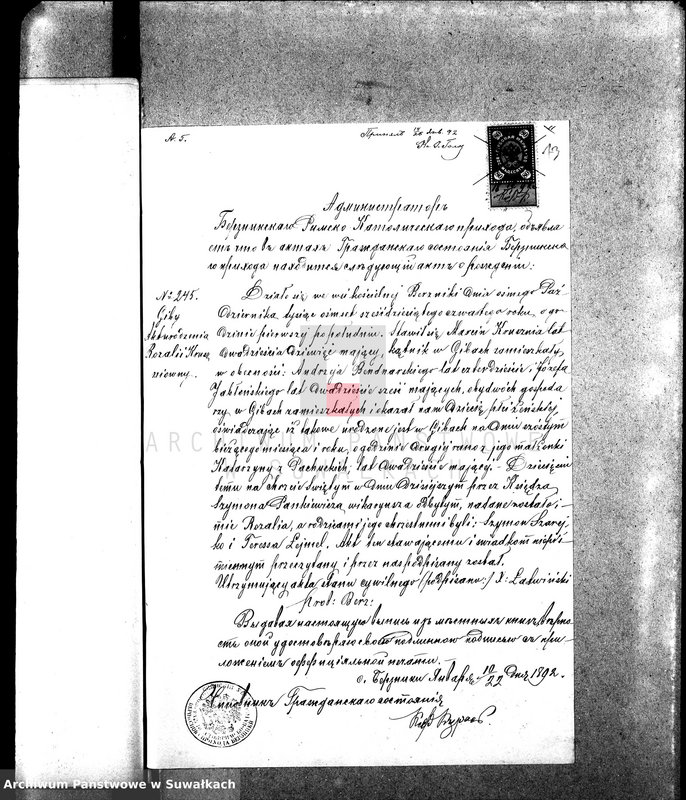 А. 5.
Администраторъ
Бержникского Римско-Католического прихода, объявля-
етъ что въ актахъ Гражданского состоянія Бержникско-
го прихода находится слѣдующій актъ о рожденіи:
№ 245.
Giby
Akt urodzenia
Rozalii Konew
niewny.
Działo się we wsi kościelnej Berżniki dnia ósmego Paź-
dziernika tysiąc ośmset sześćdziesiątego czwartego roku, o go-
dzinie pierwszej po południu. Stawił się Marcin lat
dwadzieścia dziewięć mający, kątnik w Gibach zamieszkały,
w obecności: Andrzeja Bendnarskiego lat czterdzieści i Józefa
Jabłońskiego lat dwadzieście sześć mających, obydwóch gospoda-
rzy, w Gibach zamieszkałych i okazał nam Dziecię płci żeńskiej,
oświadczając iż takowe urodzone jest w Gibach na dniu szóstym
bieżącego miesiąca i roku, o godzinie drugiej rano z jego małżonki
Katarzyny z Pachuckich, lat dwadzieście mającej. – Dziecięciu
temu na chrzcie Świętym w dniu dzisiejszym przez Księdza
Szymona Pankiewicza wikaryusza odbytym, nadane zostało i-
mie Rozalia, a rodzicami jego chrzestnemi byli: Szymon Szarej-
ko i Teressa Lejmel. Akt ten stawającemu i świadkom niepiś-
miennym przeczytany i przez nas podpisany został.
Utrzymujący akta stanu cywilnego /podpisano:/ X: Łatwiński
Prob: Berż:
Выдавая настоящую выпись изъ мѣстныхъ книгъ, вѣрно-
сть оной удостовѣряю своею подлинною подписью съ при-
ложеніемъ оффиціальной печати. –
с. Бержники Января 10/22 дня 1892.
Чиновникъ Гражданского состоянія
ARCHIWUM PAŃSTWOWE
Archiwum Państwowe w Suwałkach